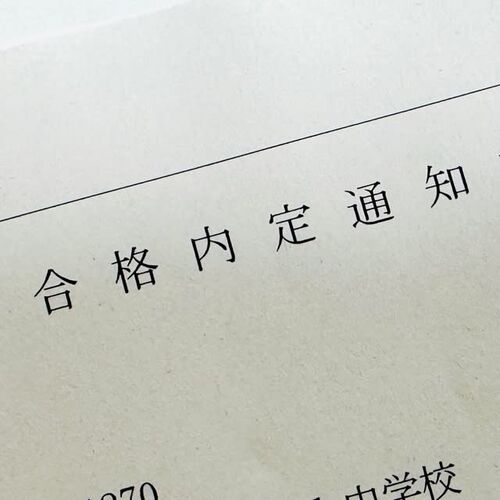 合格内定通知
270
中学校